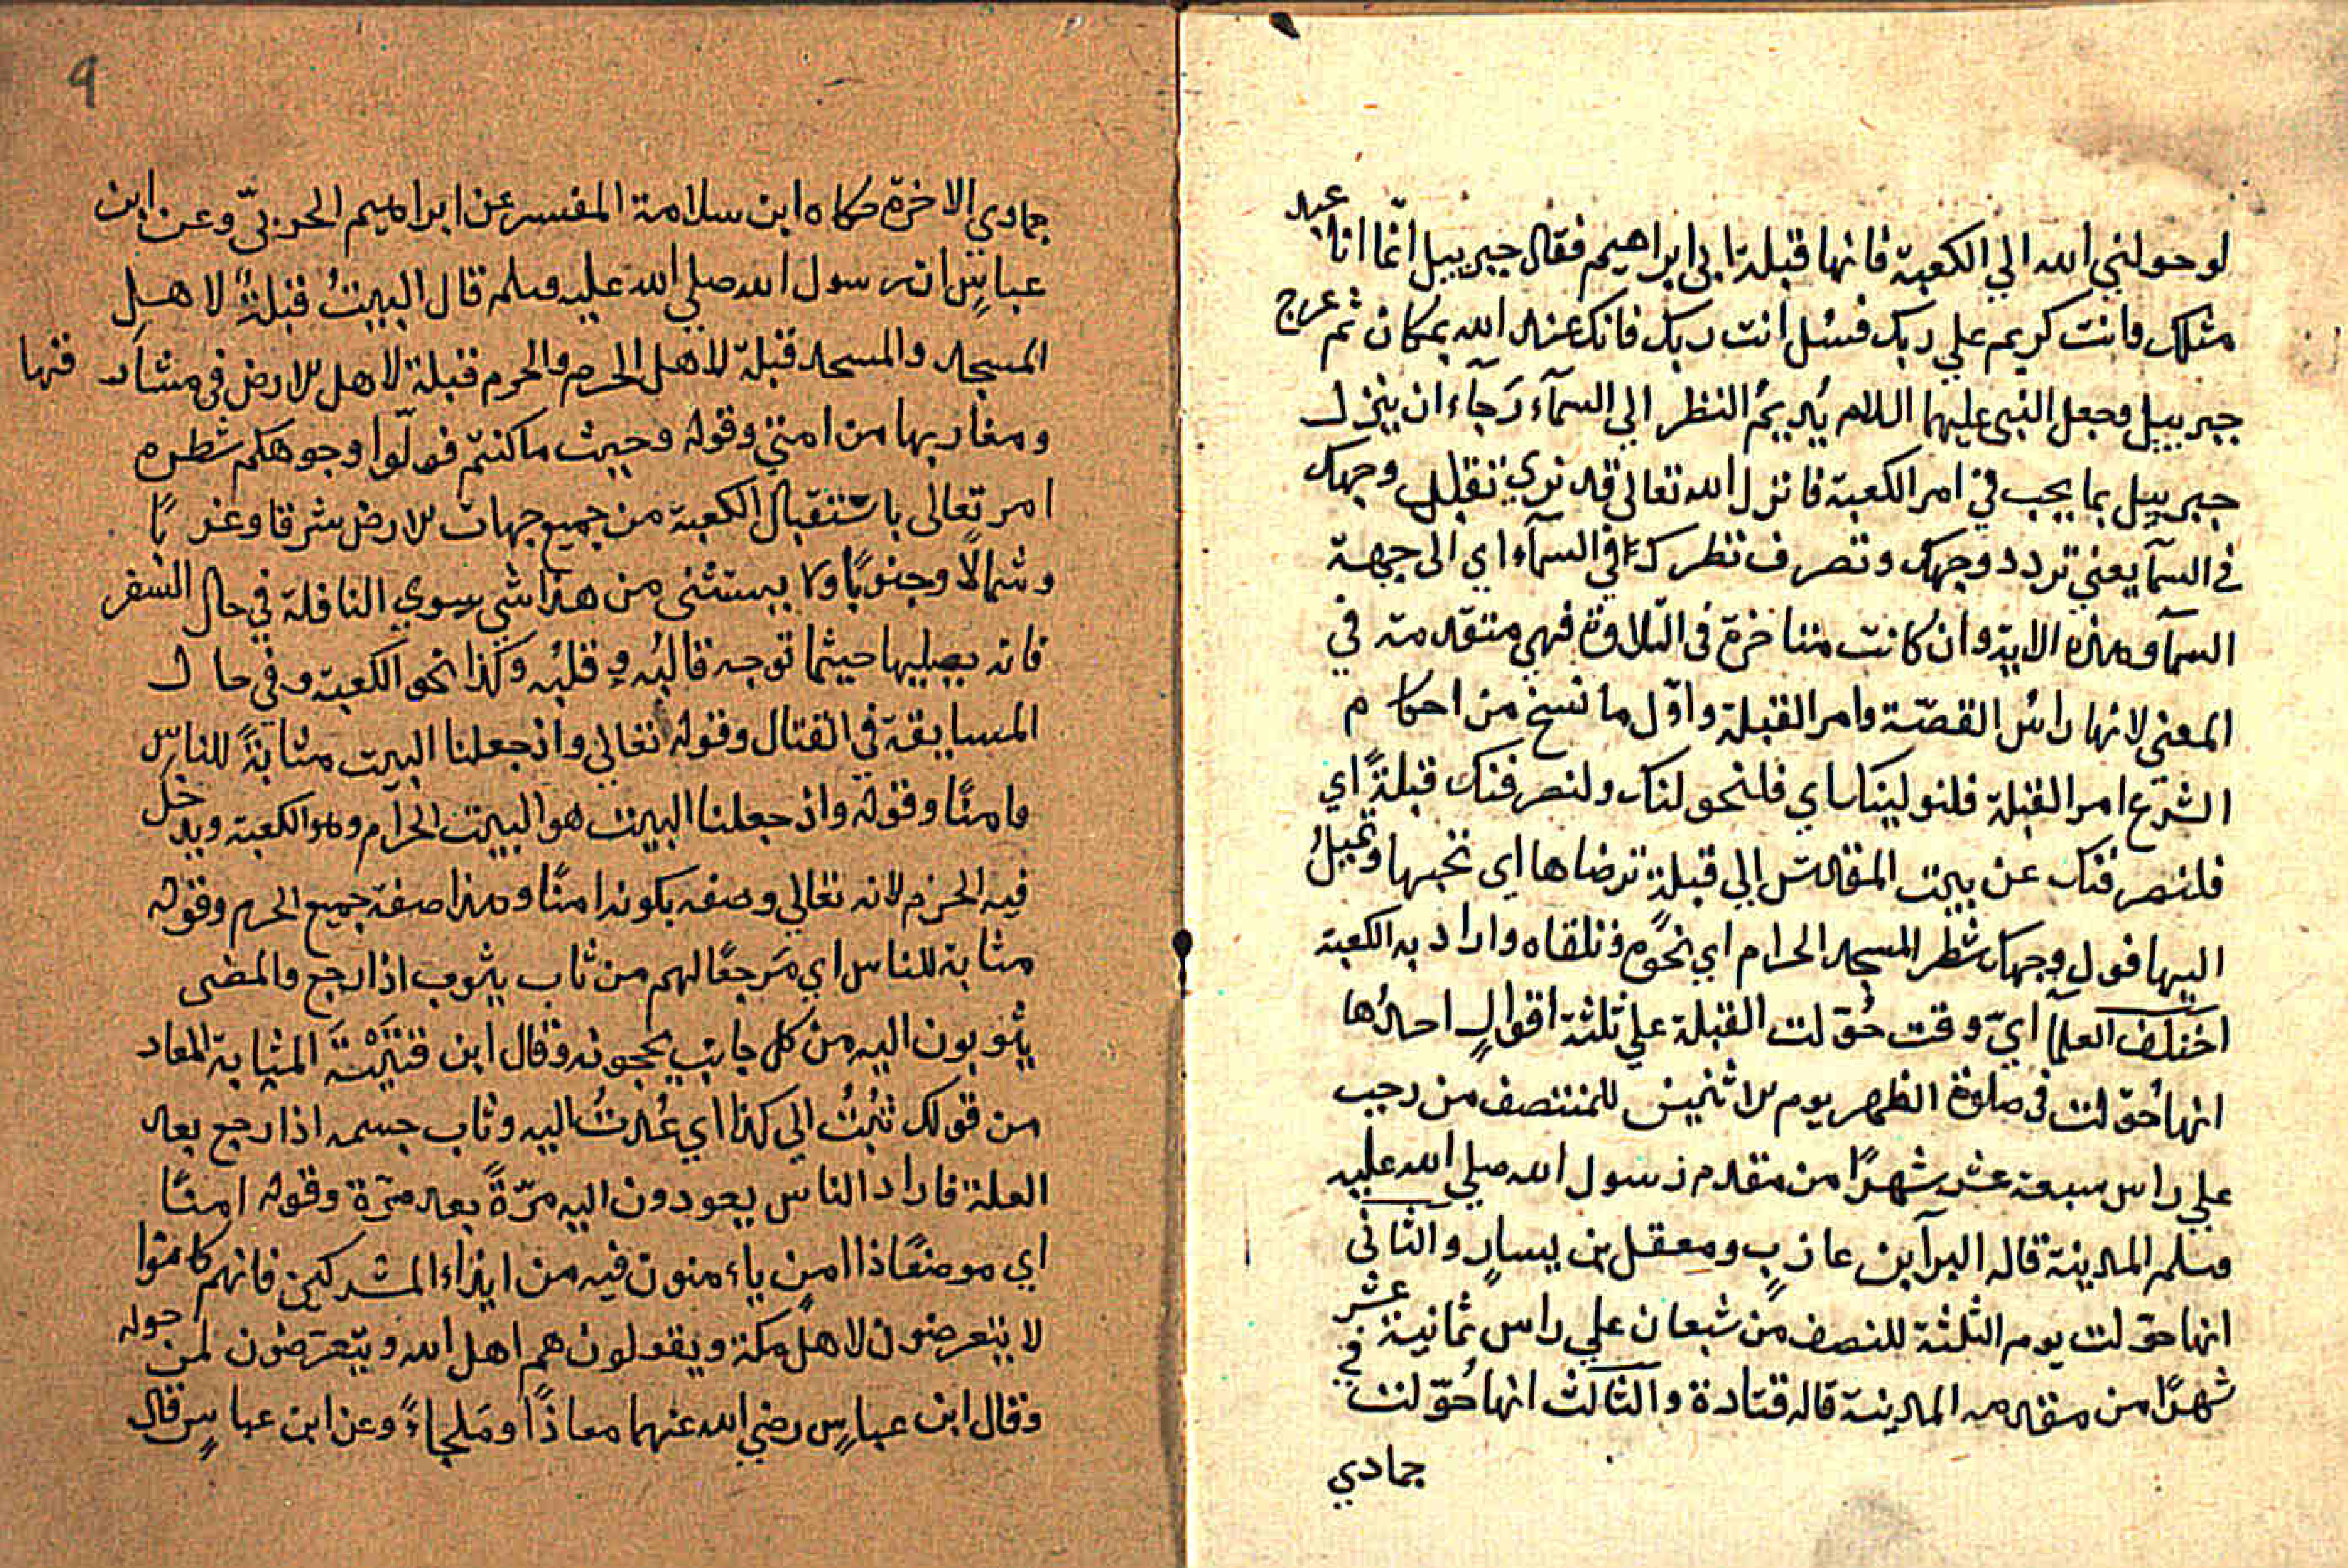 لو حولني الله الي الكعبة فانها قبلة ابي ابراهيم فقال جبرييل انّما انا عبد
مثلك وانت كريم علي ربك فسئل انت ربك فانك عند الله بمكان ثم عرج
جبرييل وجعل النبي عليهما السلام يُديمُ النظر الي السمآء رَجآء ان ينزل
جبرييل بما يحب في امر الكعبة فانزل الله تعالى قد نري تقلب وجهك
في السمآ يعني تردد وجهك وتصرف نظرك في السمآء اي الى جهة
السمآ وهذه الاية وان كانت متاخرة في التلاوة فهي متقدمة في
المعنى لانها راسُ القصّة وامر القبلة واوّل ما نسخ من احكام
الشرع امر القبلة فلنولينك اي فلنحولنك ولنصرفنك قبلةً اي
فلنصرفنك عن بيت المقدس الي قبلة ترضاها اي تحبها وتميلُ
اليها فول وجهك شطر المسجد الحرام اي نحوه وتلقاه واراد به الكعبة
اختلف العلمآ ايّ وقت حُوّلت القبلة علي ثلثة اقوالٍ احدُها
انها حُوّلت في صلوة الظهر يوم الاثنين للمنتصف من رجب
علي راس سبعة عشر شهرًا من مقدم رسول الله صلي الله عليه
وسلم المدينة قاله البرآ بن عازبٍ ومعقل بن يسارٍ والثاني
انها حوّلت يوم الثلثة للنصف من شعبان علي راس ثمانية عشر
شهرًا من مقدمه المدينة قاله قتادة والثالث انها حُوّلت في
جمادي
9
جمادي الاخرة حكاه ابن سلامة المفسر عن ابراهيم الحربيّ وعن ابن
عباسٍ ان رسول الله صلي الله عليه وسلم قال البيتُ قبلةٌ لاهلِ
المسجد والمسجد قبلة لاهل الحرم والحرم قبلة لاهل الارض في مشارقها
ومغاربها من امتي وقوله وحيث ما كنتم فولّوا وجوهكم شطره
امر تعالى باستقبال الكعبة من جميع جهات الارض شرقا وغربًا
وشمالًا وجنوبًا ولا يستثنى من هذا شي سوي النافلة في حال السفر
فانه يصليها حيثما توجه قالبُه وقلبُه وكذا نحو الكعبة وفي حال
المسايفة في القتال وقوله تعالي واذ جعلنا البيت مثابةً للناس
وامنًا وقوله واذ جعلنا البيت هو البيت الحرام وهو الكعبة ويدخل
فيه الحرم لانه تعالي وصفه بكونه امنًا وهذا صفة جميع الحرم وقوله
مثابة للناس اي مَرجعًا لهم من ثاب يثوب اذا رجع والمضى
يثوبون اليه من كل جانب يحجونه وقال ابن قتيبة المثابة المعاد
من قولك ثُبْتُ الي كذا اي عُدتُ اليه وثاب جسمه اذا رجع بعد
العلة فاراد الناس يعودون اليه مرّةً بعد مرّة وقوله امنًا
اي موضعًا ذا امنٍ ياءمنون فيه من ايذاء المشركين فانهم كانوا
لا يتعرضون لاهل مكة ويقولون هم اهل الله ويتعرّضون لمن حوله
وقال ابن عباسٍ رضي الله عنهما معاذًا ومَلجاءً وعن ابن عباسٍ قال